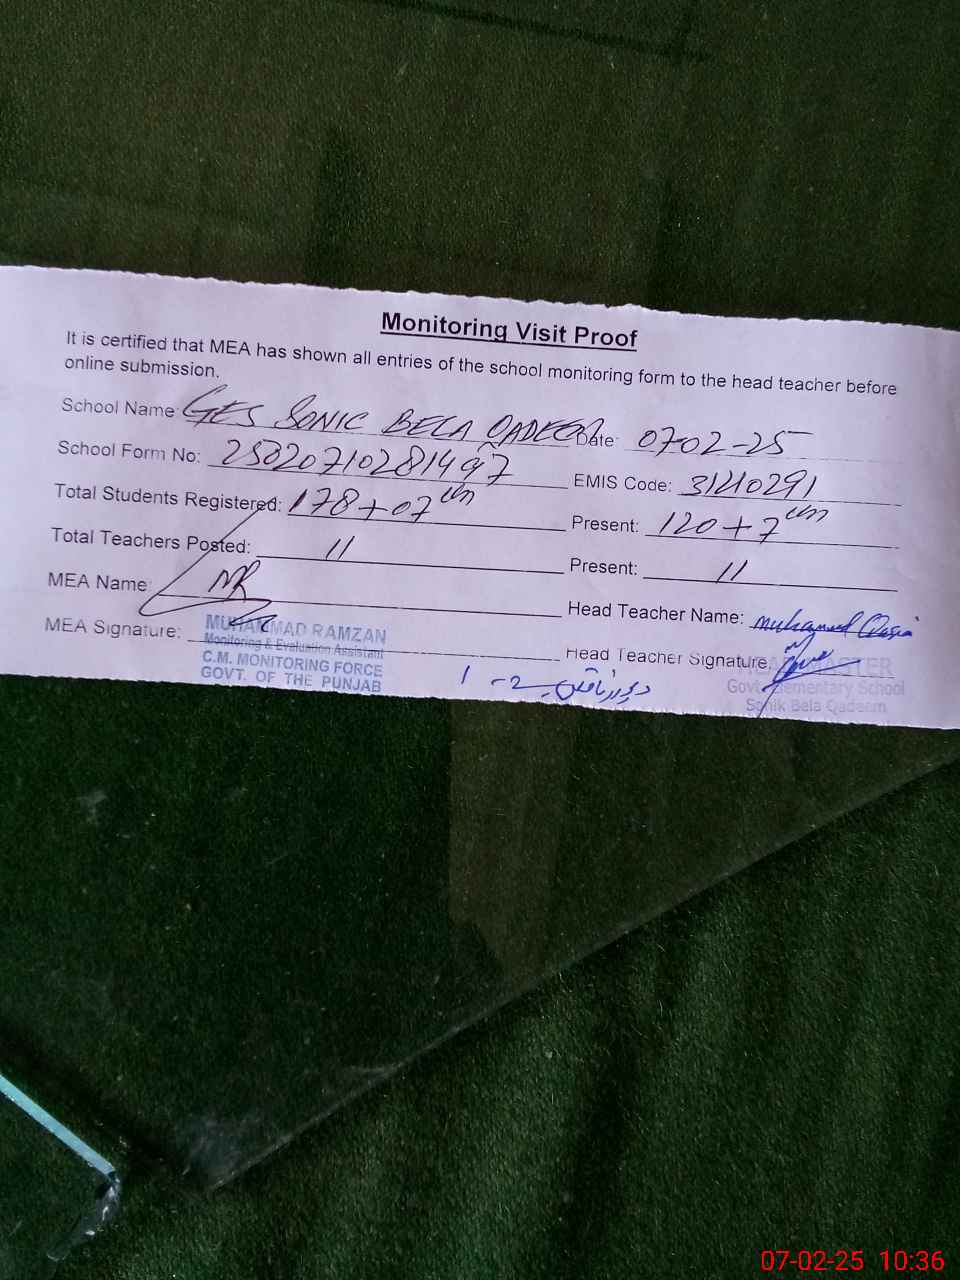 Monitoring Visit Proof
It is certified that MEA has shown all entries of the school monitoring form to the head teacher before
online submission.
School Name: GES SONIC BELA QADEEM Date: 07-02-25
School Form No: 25020710281497 EMIS Code: 31210291
Total Students Registered: 178+07 Present: 120+7
Total Teachers Posted: 11 Present: 11
MEA Name: MR Head Teacher Name: Muhammad Qasim
MEA Signature: Head Teacher Signature:
MUHAMMAD RAMZAN
Monitoring & Evaluation Assistant
C.M. MONITORING FORCE
GOVT. OF THE PUNJAB
HEADMASTER
Govt. Elementary School
Sonik Bela Qadeem
07-02-25 10:36